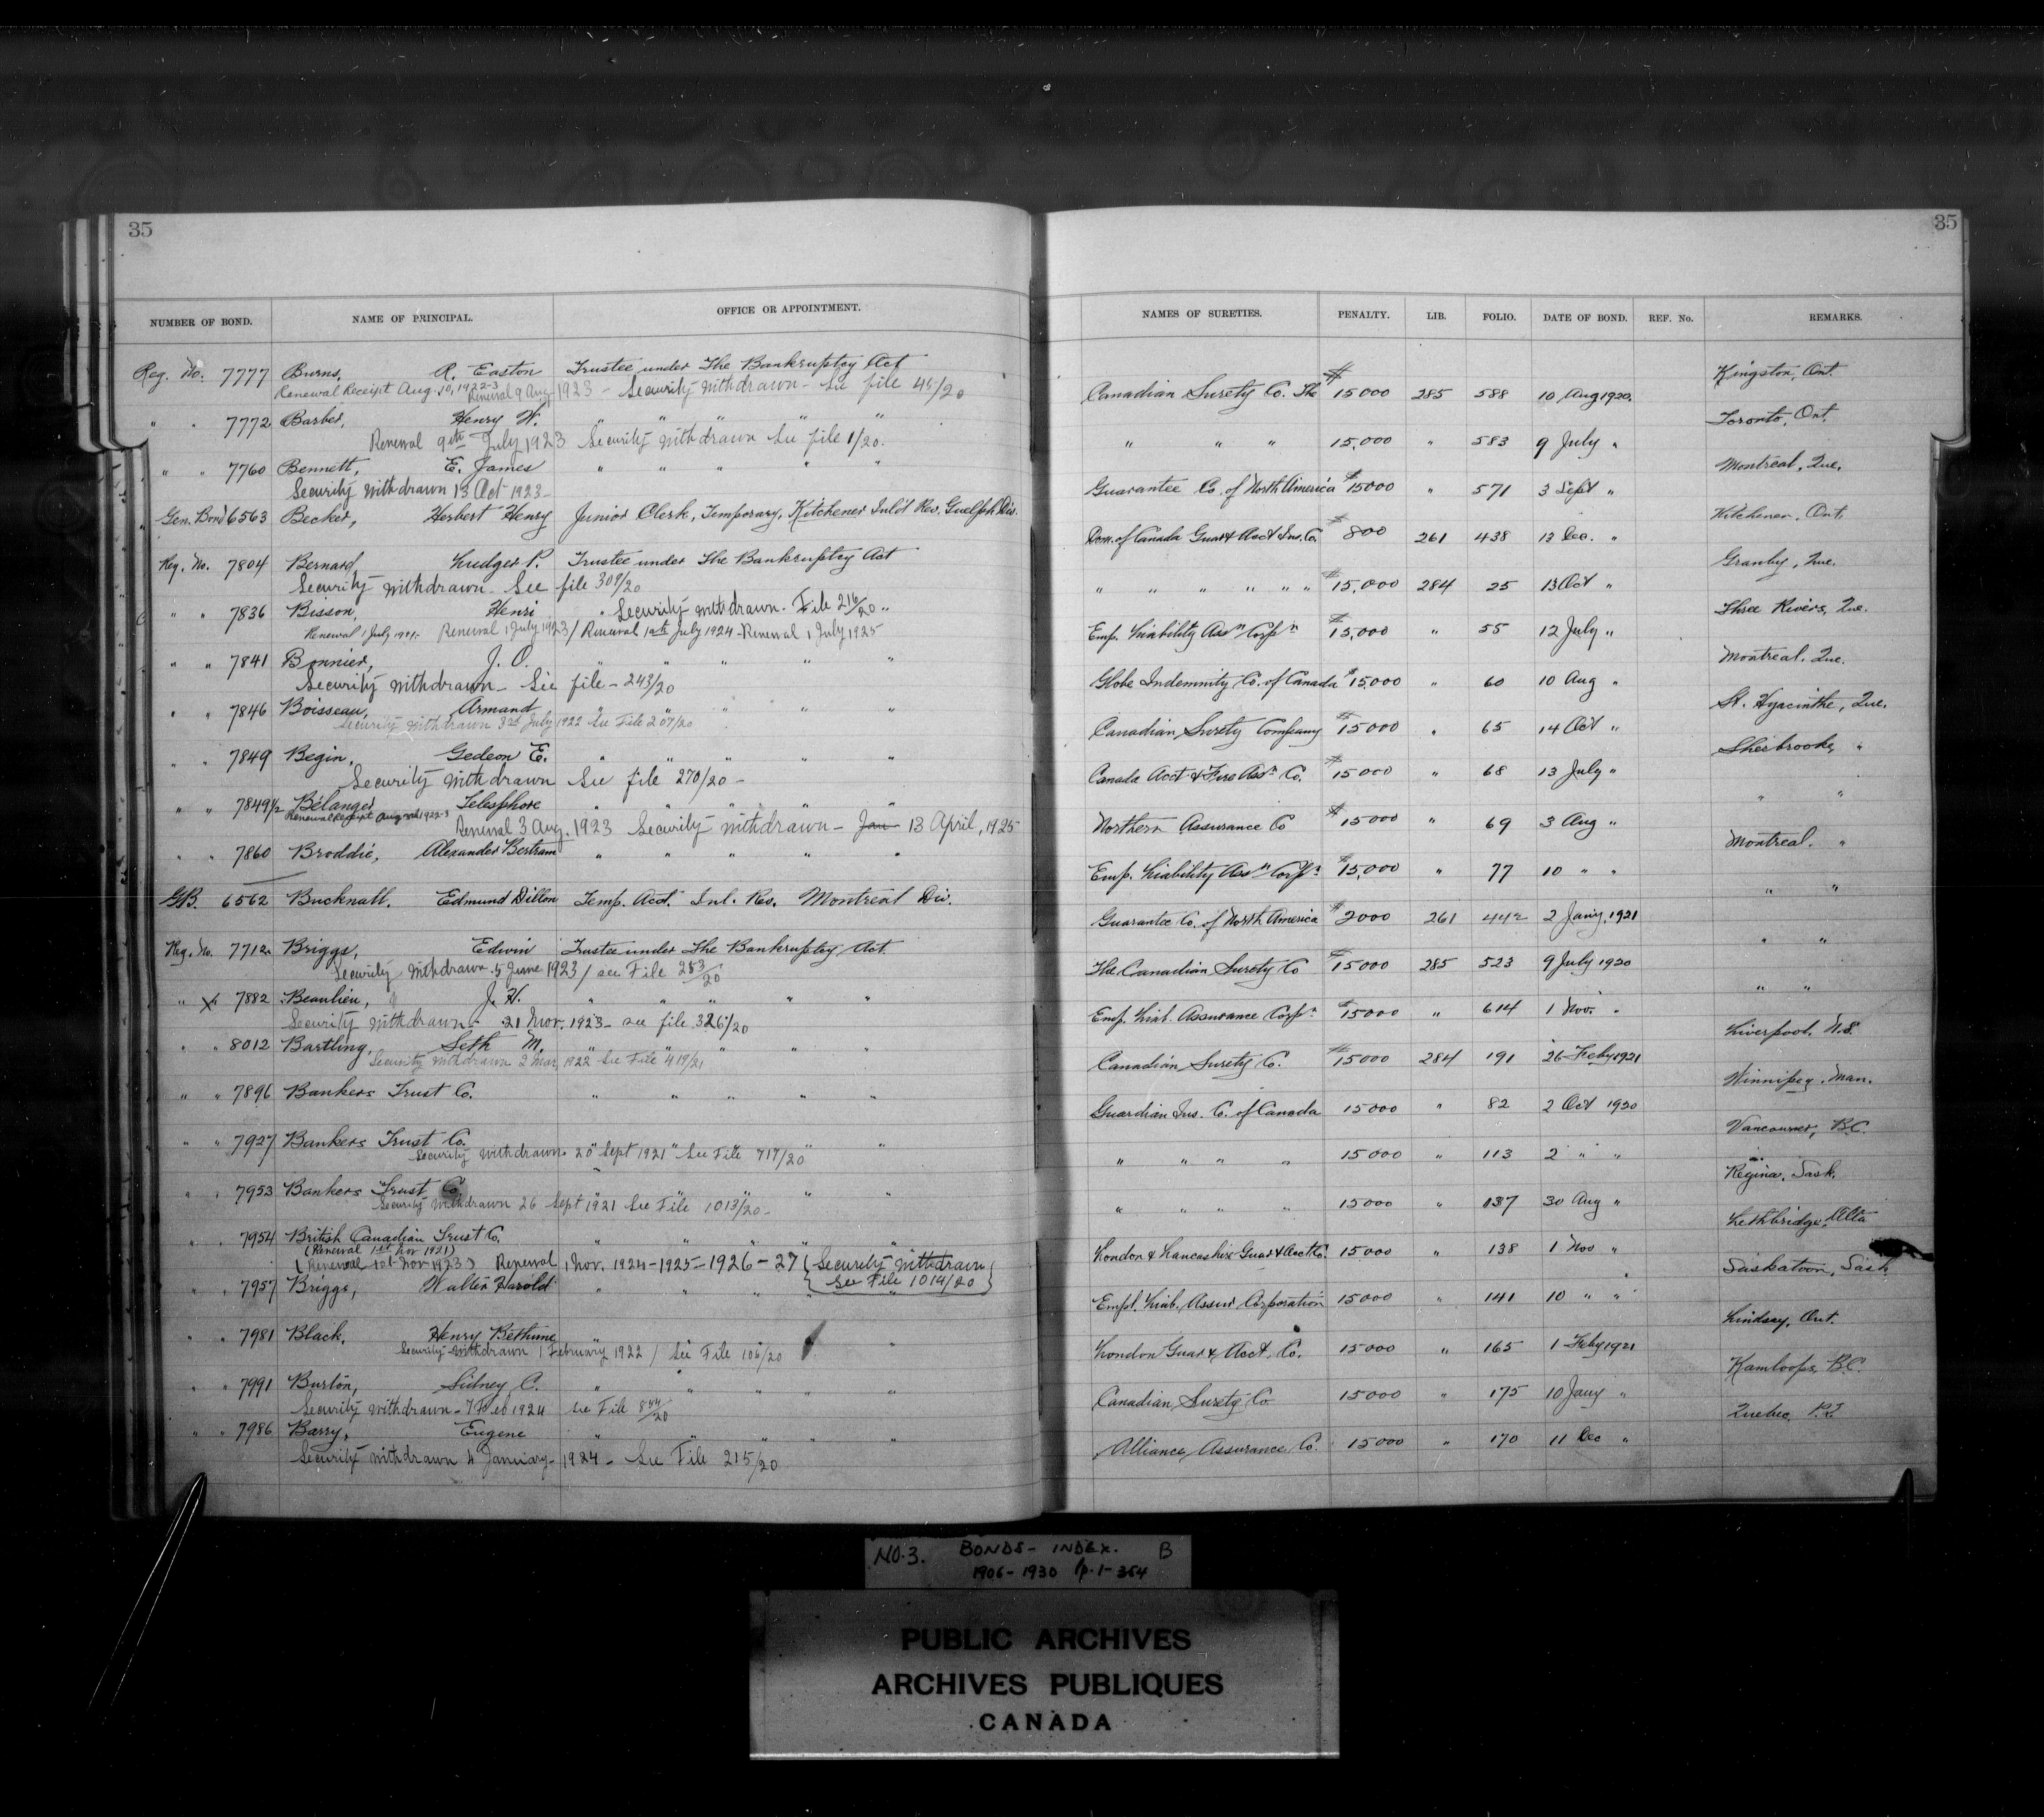 35
NUMBER OF BOND. NAME OF PRINCIPAL. OFFICE OR APPOINTMENT.
Reg. No. 7777 Burns, R. Easton Trustee under The Bankruptcy Act
Renewal Receipt Aug. 10, 1922-3 Renewal 9 Aug 1923 - Security withdrawn - See file 45/20
" " 7772 Barber, Henry W. " " " " "
Renewal 9th July 1923 Security withdrawn See file 1/20.
" " 7760 Bennett, E. James " " " " "
Security withdrawn 13 Oct 1923 -
Gen. Bond 6563 Becker, Herbert Henry Junior Clerk, Temporary, Kitchener Inl'd Rev. Guelph Div.
Reg. No. 7804 Bernard Ludger P. Trustee under The Bankruptcy Act
Security withdrawn - See file 309/20
" " 7836 Bisson, Henri " Security withdrawn - File 216/20 "
Renewal 1 July 1921 - Renewal 1 July 1923 / Renewal 10th July 1924 - Renewal 1 July 1925
" " 7841 Bonnier, J. O. " " " " "
Security withdrawn - See file - 243/20
" " 7846 Boisseau, Armand " " " " "
Security withdrawn 3rd July 1922 See File 207/20
" " 7849 Begin, Gedeon E. " " " " "
Security withdrawn See file 270/20 -
" " 7849 1/2 Bélanger Telesphore " " " " "
Renewal Receipt Aug 3rd 1922-3
Renewal 3 Aug. 1923 Security withdrawn - Jan 13 April, 1925
" " 7860 Broddie, Alexander Bertram " " " " "
G.B. 6562 Bucknall, Edmund Dillon Temp. Acct. Inl. Rev. Montreal Div.
Reg. No. 7712 Briggs, Edwin Trustee under The Bankruptcy Act.
Security withdrawn 5 June 1923 / see File 253/20
" X 7882 Beaulieu, J. H. " " " " "
Security withdrawn - 21 Nov. 1923 - see file 326/20
" " 8012 Bartling, Seth M. " " " " "
Security withdrawn 2 Mar 1922 See File 419/21
" " 7896 Bankers Trust Co. " " " " "
" " 7927 Bankers Trust Co. " " " " "
Security withdrawn 20 Sept 1921 See File 717/20
" " 7953 Bankers Trust Co. " " " " "
Security withdrawn 26 Sept 1921 See File 1013/20 -
" " 7954 British Canadian Trust Co. " " " " "
(Renewal 1st Nov 1921)
(Renewal 1st Nov 1923) Renewal 1 Nov. 1924 - 1925 - 1926 - 27 (Security withdrawn
See File 1014/20)
" " 7957 Briggs, Walter Harold " " " " "
" " 7981 Black, Henry Bethune " " "
Security withdrawn 1 February 1922 / See File 106/20
" " 7991 Burton, Sidney C. " " " " "
Security withdrawn - 7 Feb 1924 see File 844/20
" " 7986 Barry, Eugene " " " " "
Security withdrawn 4 January - 1924 - See File 215/20
35
NAMES OF SURETIES. PENALTY. LIB. FOLIO. DATE OF BOND. REF. No. REMARKS.
Canadian Surety Co. The $15000 285 588 10 Aug 1920. Kingston, Ont.
" " " 15,000 " 583 9 July " Toronto, Ont.
Guarantee Co. of North America $15000 " 571 3 Sept " Montreal, Que.
Dom. of Canada Guar & Acct Ins. Co. $800 261 438 13 Dec. " Kitchener, Ont.
" " " " " " $15,000 284 25 13 Oct " Granby, Que.
Emp. Liability Assn Corpn $15,000 " 55 12 July " Three Rivers, Que.
Globe Indemnity Co. of Canada $15,000 " 60 10 Aug " Montreal, Que.
Canadian Surety Company $15000 " 65 14 Oct " St. Hyacinthe, Que.
Canada Acct & Fire Assn Co. $15000 " 68 13 July " Sherbrooke, "
Northern Assurance Co $15000 " 69 3 Aug " " "
Emp. Liability Assn Corpn $15,000 " 77 10 " " Montreal. "
Guarantee Co. of North America $2000 261 442 2 Jan'y, 1921 " "
The Canadian Surety Co $15000 285 523 9 July 1920 " "
Emp. Liab. Assurance Corpn $15000 " 614 1 Nov. " " "
Canadian Surety Co. $15000 284 191 26 Feby 1921 Liverpool, N.S.
Guardian Ins. Co. of Canada 15000 " 82 2 Oct 1920 Winnipeg, Man.
" " " " 15000 " 113 2 " " Vancouver, B.C.
" " " " 15000 " 137 30 Aug " Regina, Sask.
London & Lancashire Guar & Acct Co. 15000 " 138 1 Nov " Lethbridge, Alta
Empl. Liab. Assur Corporation 15000 " 141 10 " " Saskatoon, Sask.
London Guar & Acct. Co. 15000 " 165 1 Feby 1921 Lindsay, Ont.
Canadian Surety Co 15000 " 175 10 Jany " Kamloops, B.C.
Alliance Assurance Co. 15000 " 170 11 Dec " Quebec, P.Q.
NO. 3. BONDS - INDEX. B
1906-1930 p. 1-364
PUBLIC ARCHIVES
ARCHIVES PUBLIQUES
CANADA